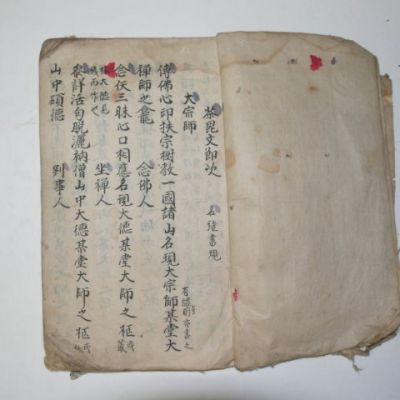 茶毘文節次
名旌書規
大宗師
傳佛心印扶宗樹教一國諸山名現大宗師某堂大
禪師之龕
念佛人
念仸三昧心口相應名現大德某堂大師之柩
坐禪人
叅詳活句脫灑衲僧山中大德某堂大師之柩
山中碩德
判事人